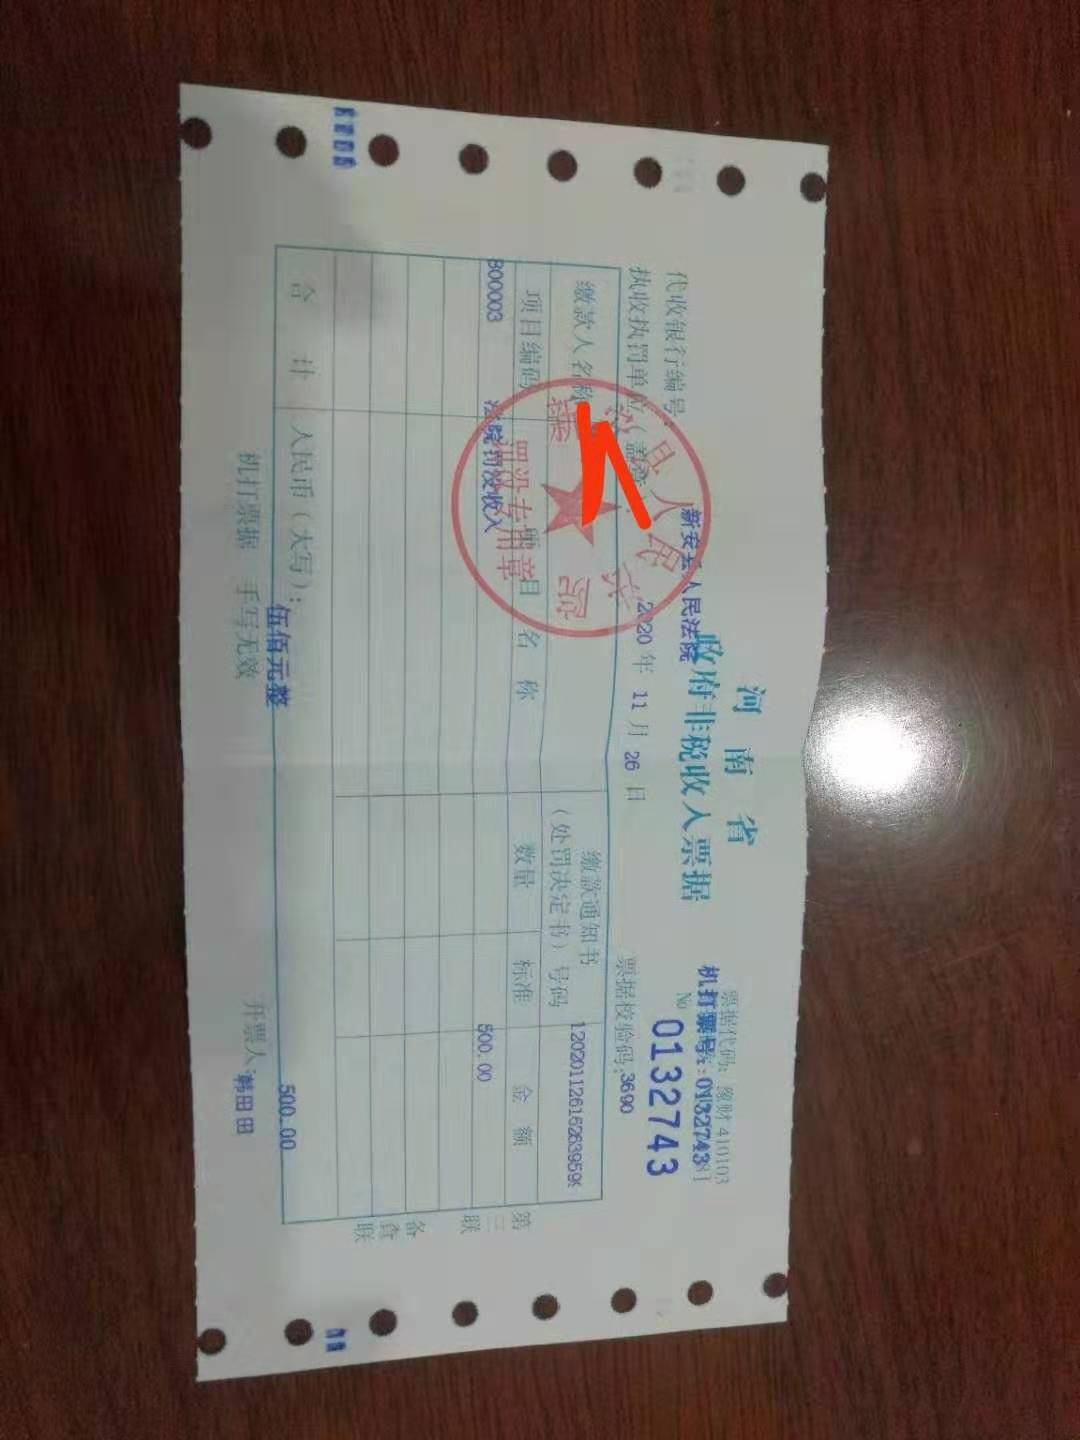 河南省
政府非税收入票据
票据代码：豫财 410103
机打票号：01327438
№ 0132743
代收银行编号：
新安县人民法院
执收执罚单位（盖章）：
2020 年 11 月 26 日
票据校验码：3690
缴款人名称
缴款通知书
（处罚决定书）号码
项目编码
项 目 名 称
数量
标准
金 额
800003
法院罚没收入
500.00
合 计
人民币（大写）：
伍佰元整
500.00
机打票据 手写无效
开票人：
韩田田
第三联
备查联
人民法院
罚没专用章